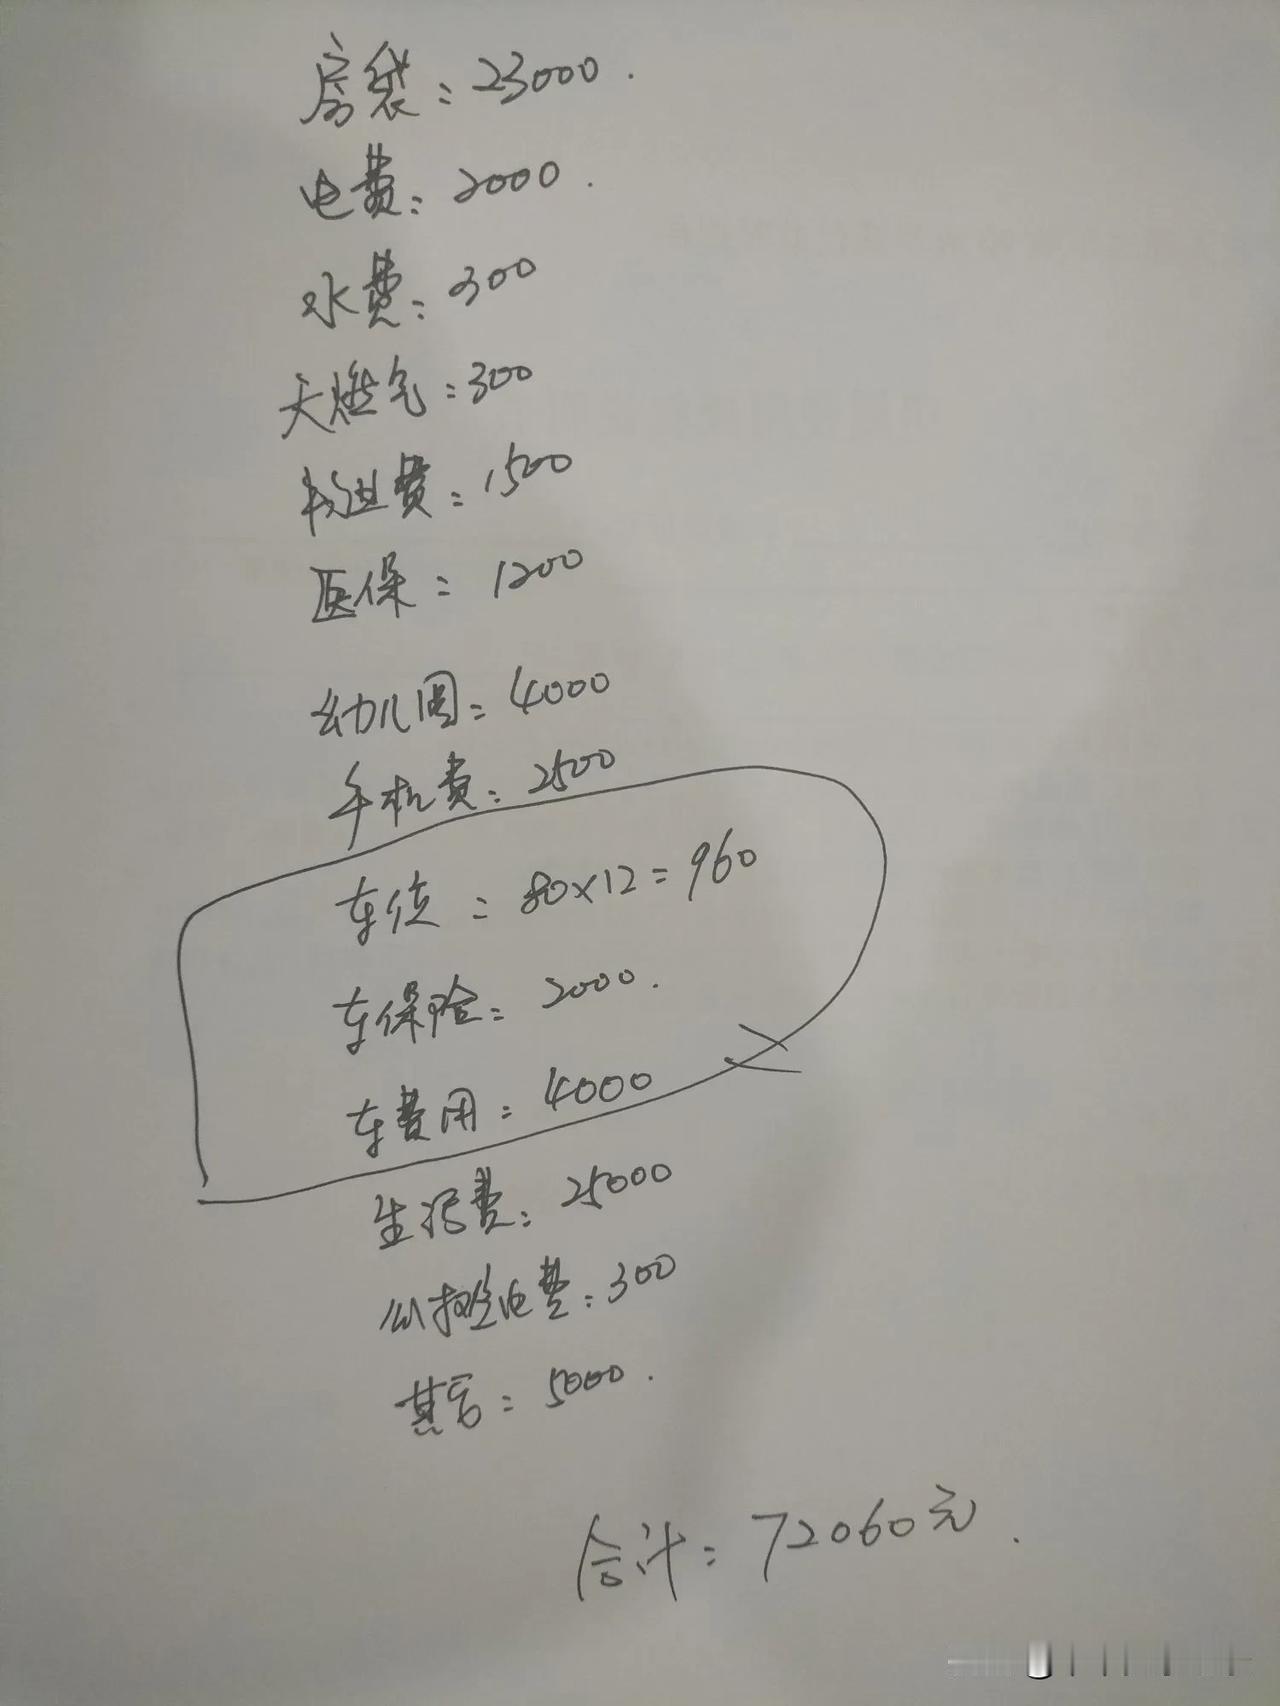 房袋：23000.
电费：2000.
水费：300
天燃气：300
物业费：1500
医保：1200
幼儿园：4000
手机费：2500
车位：80×12=960
车保险：2000.
车费用：4000
生活费：25000
公摊电费：300
其它：5000.
合计：72060元.